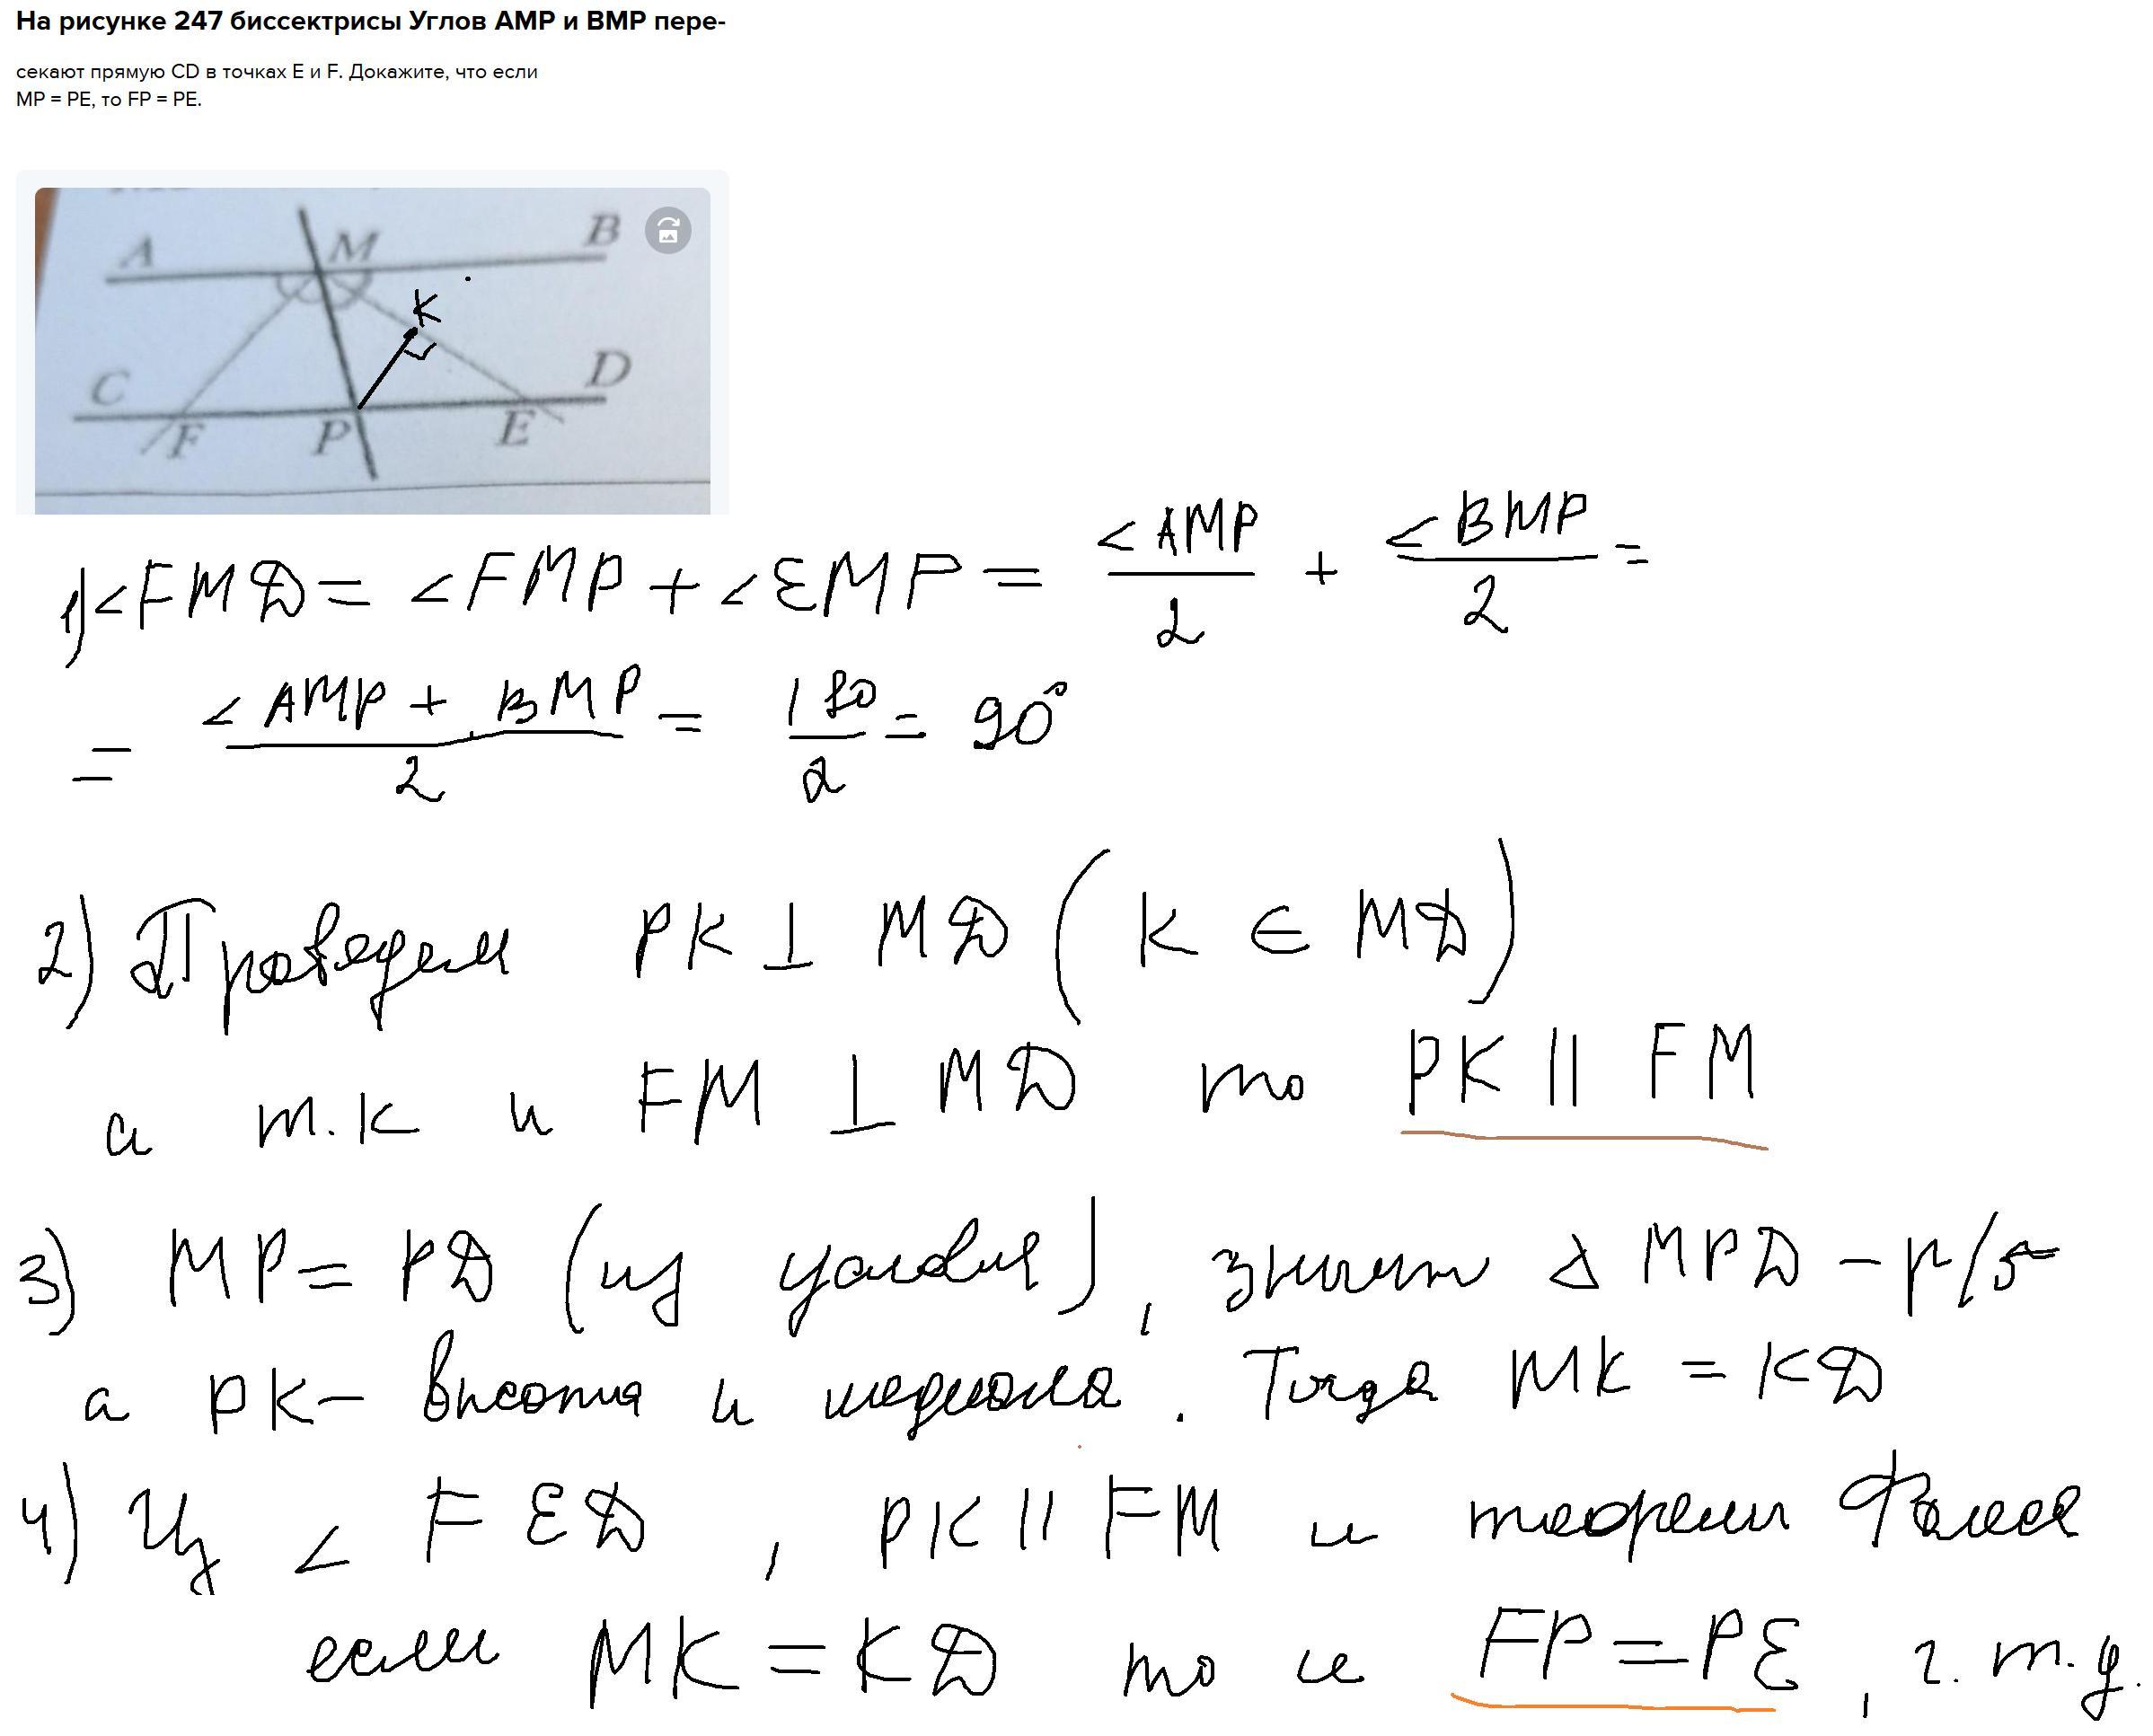 На рисунке 247 биссектрисы Углов АМР и ВМР пере-
секают прямую CD в точках Е и F. Докажите, что если
МР = РЕ, то FP = PE.
A M B
K
C D
F P E
1) ∠FMD = ∠FMP + ∠EMP = ∠AMP/2 + ∠BMP/2 =
= ∠AMP + BMP/2 = 180/2 = 90°
2) Проведем PK ⊥ MD (K ∈ MD)
а т.к и FM ⊥ MD то PK || FM
3) MP = PD (из условия), значит Δ MPD – р/б
а PK – высота и медиана. Тогда MK = KD
4) Из ∠ FED, PK || FM и теоремы Фалеса
если MK = KD то и FP = PE, ч.т.д.